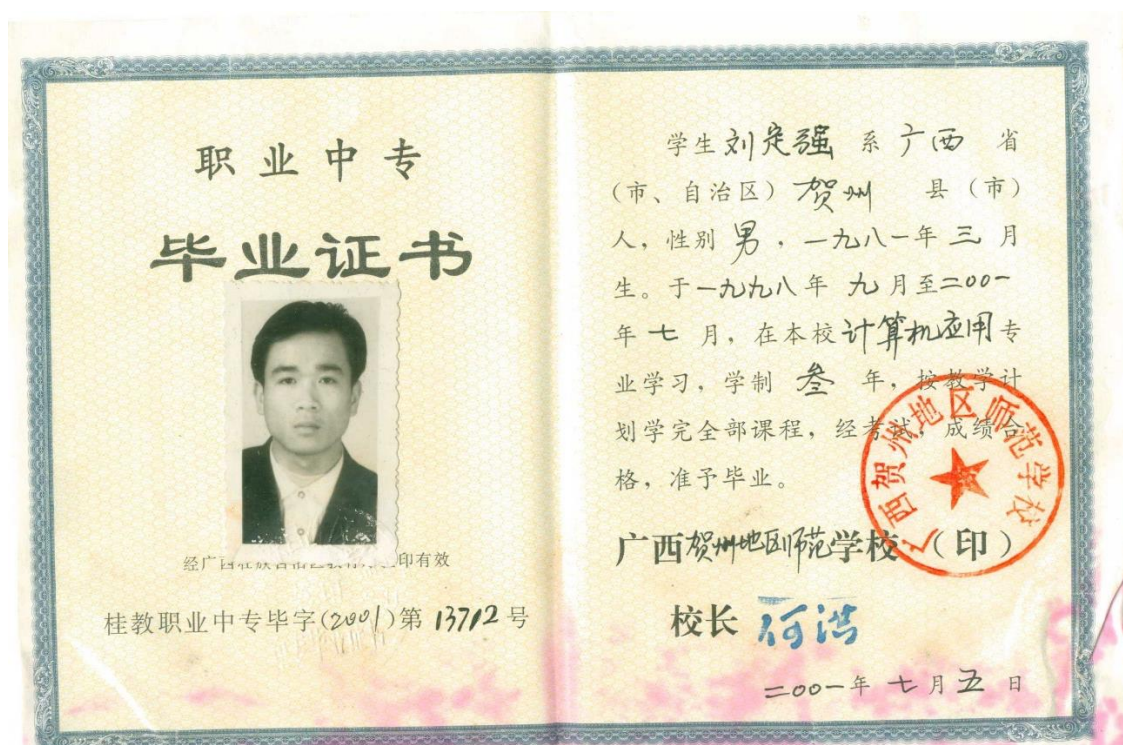 职业中专
毕业证书
经广西壮族自治区教育厅印有效
桂教职业中专毕字(2001)第 13712 号
学生 刘定强 系 广西 省
(市、自治区) 贺州 县(市)
人，性别 男，一九八一年 三 月
生。于一九九八年 九 月至二00一
年 七 月，在本校 计算机应用 专
业学习，学制 叁 年，按教学计
划学完全部课程，经考试，成绩合
格，准予毕业。
广西贺州地区师范学校（印）
广西贺州地区师范学校
校长 何洪
二00一年 七 月 五 日